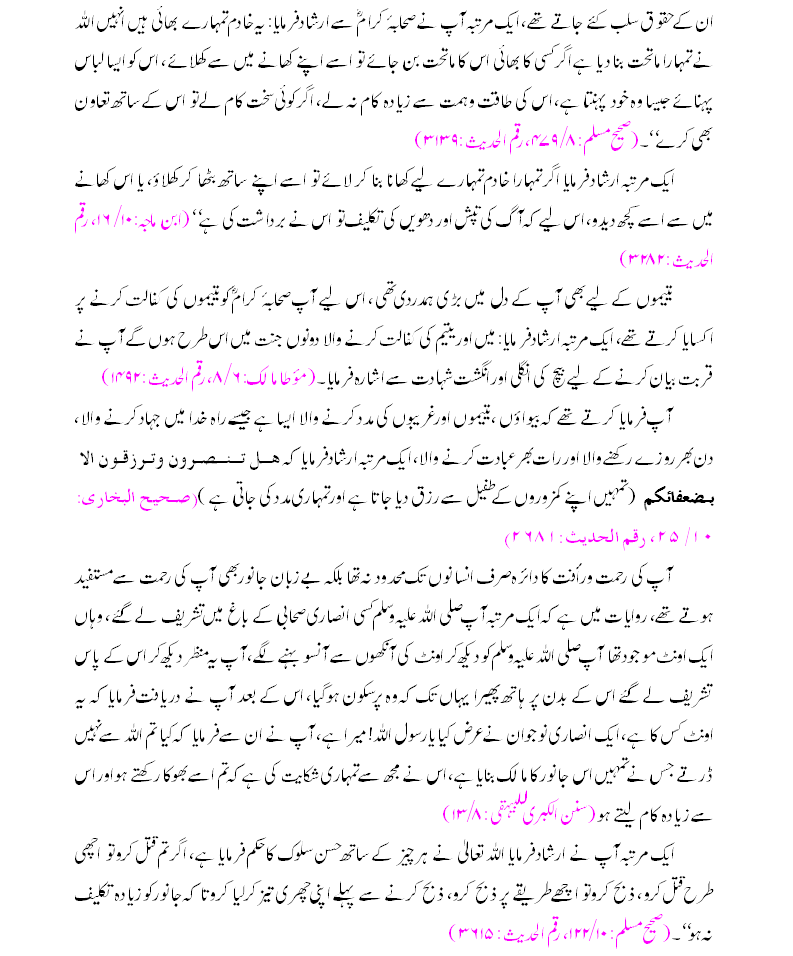 ان کے حقوق سلب کئے جاتے تھے، ایک مرتبہ آپ نے صحابۂ کرامؓ سے ارشاد فرمایا: یہ خادم تمہارے بھائی ہیں انہیں اللہ
نے تمہارا ماتحت بنا دیا ہے اگر کسی کا بھائی اس کا ماتحت بن جائے تو اسے اپنے کھانے میں سے کھلائے، اس کو ایسا لباس
پہنائے جیسا وہ خود پہنتا ہے، اس کی طاقت وہمت سے زیادہ کام نہ لے، اگر کوئی سخت کام لے تو اس کے ساتھ تعاون
بھی کرے‘‘۔ (صحیح مسلم: ۸/ ۴۷۹، رقم الحدیث: ۳۱۳۹)
ایک مرتبہ ارشاد فرمایا اگر تمہارا خادم تمہارے لیے کھانا بنا کر لائے تو اسے اپنے ساتھ بٹھا کر کھلاؤ، یا اس کھانے
میں سے اسے کچھ دیدو، اس لیے کہ آگ کی تپش اور دھویں کی تکلیف تو اس نے برداشت کی ہے‘‘ (ابن ماجہ: ۱۰/ ۱۶، رقم
الحدیث: ۳۲۸۲)
یتیموں کے لیے بھی آپ کے دل میں بڑی ہمدردی تھی، اس لیے آپ صحابۂ کرامؓ کو یتیموں کی کفالت کرنے پر
اکسایا کرتے تھے، ایک مرتبہ ارشاد فرمایا: میں اور یتیم کی کفالت کرنے والا دونوں جنت میں اس طرح ہوں گے آپ نے
قربت بیان کرنے کے لیے بیچ کی انگلی اور انگشت شہادت سے اشارہ فرمایا۔ (مؤطا مالک: ۶/ ۸، رقم الحدیث: ۱۴۹۲)
آپ فرمایا کرتے تھے کہ بیواؤں، یتیموں اور غریبوں کی مدد کرنے والا ایسا ہے جیسے راہ خدا میں جہاد کرنے والا،
دن بھر روزے رکھنے والا اور رات بھر عبادت کرنے والا، ایک مرتبہ ارشاد فرمایا کہ هل تنصرون وترزقون الا
بضعفائكم (تمہیں اپنے کمزوروں کے طفیل سے رزق دیا جاتا ہے اور تمہاری مدد کی جاتی ہے) (صحیح البخاری:
۱۰/ ۲۵، رقم الحدیث: ۲۶۸۱)
آپ کی رحمت ورأفت کا دائرہ صرف انسانوں تک محدود نہ تھا بلکہ بے زبان جانور بھی آپ کی رحمت سے مستفید
ہوتے تھے، روایات میں ہے کہ ایک مرتبہ آپ صلی اللہ علیہ وسلم کسی انصاری صحابی کے باغ میں تشریف لے گئے، وہاں
ایک اونٹ موجود تھا آپ صلی اللہ علیہ وسلم کو دیکھ کر اونٹ کی آنکھوں سے آنسو بہنے لگے، آپ یہ منظر دیکھ کر اس کے پاس
تشریف لے گئے اس کے بدن پر ہاتھ پھیرا یہاں تک کہ وہ پرسکون ہوگیا، اس کے بعد آپ نے دریافت فرمایا کہ یہ
اونٹ کس کا ہے، ایک انصاری نوجوان نے عرض کیا یا رسول اللہ! میرا ہے، آپ نے ان سے فرمایا کہ کیا تم اللہ سے نہیں
ڈرتے جس نے تمہیں اس جانور کا مالک بنایا ہے، اس نے مجھ سے تمہاری شکایت کی ہے کہ تم اسے بھوکا رکھتے ہو اور اس
سے زیادہ کام لیتے ہو (سنن الکبری للبیہقی: ۸/ ۱۳)
ایک مرتبہ آپ نے ارشاد فرمایا اللہ تعالیٰ نے ہر چیز کے ساتھ حسن سلوک کا حکم فرمایا ہے، اگر تم قتل کرو تو اچھی
طرح قتل کرو، ذبح کرو تو اچھے طریقے پر ذبح کرو، ذبح کرنے سے پہلے اپنی چھری تیز کر لیا کرو تا کہ جانور کو زیادہ تکلیف
نہ ہو‘‘۔ (صحیح مسلم: ۱۰/ ۱۲۲، رقم الحدیث: ۳۶۱۵)